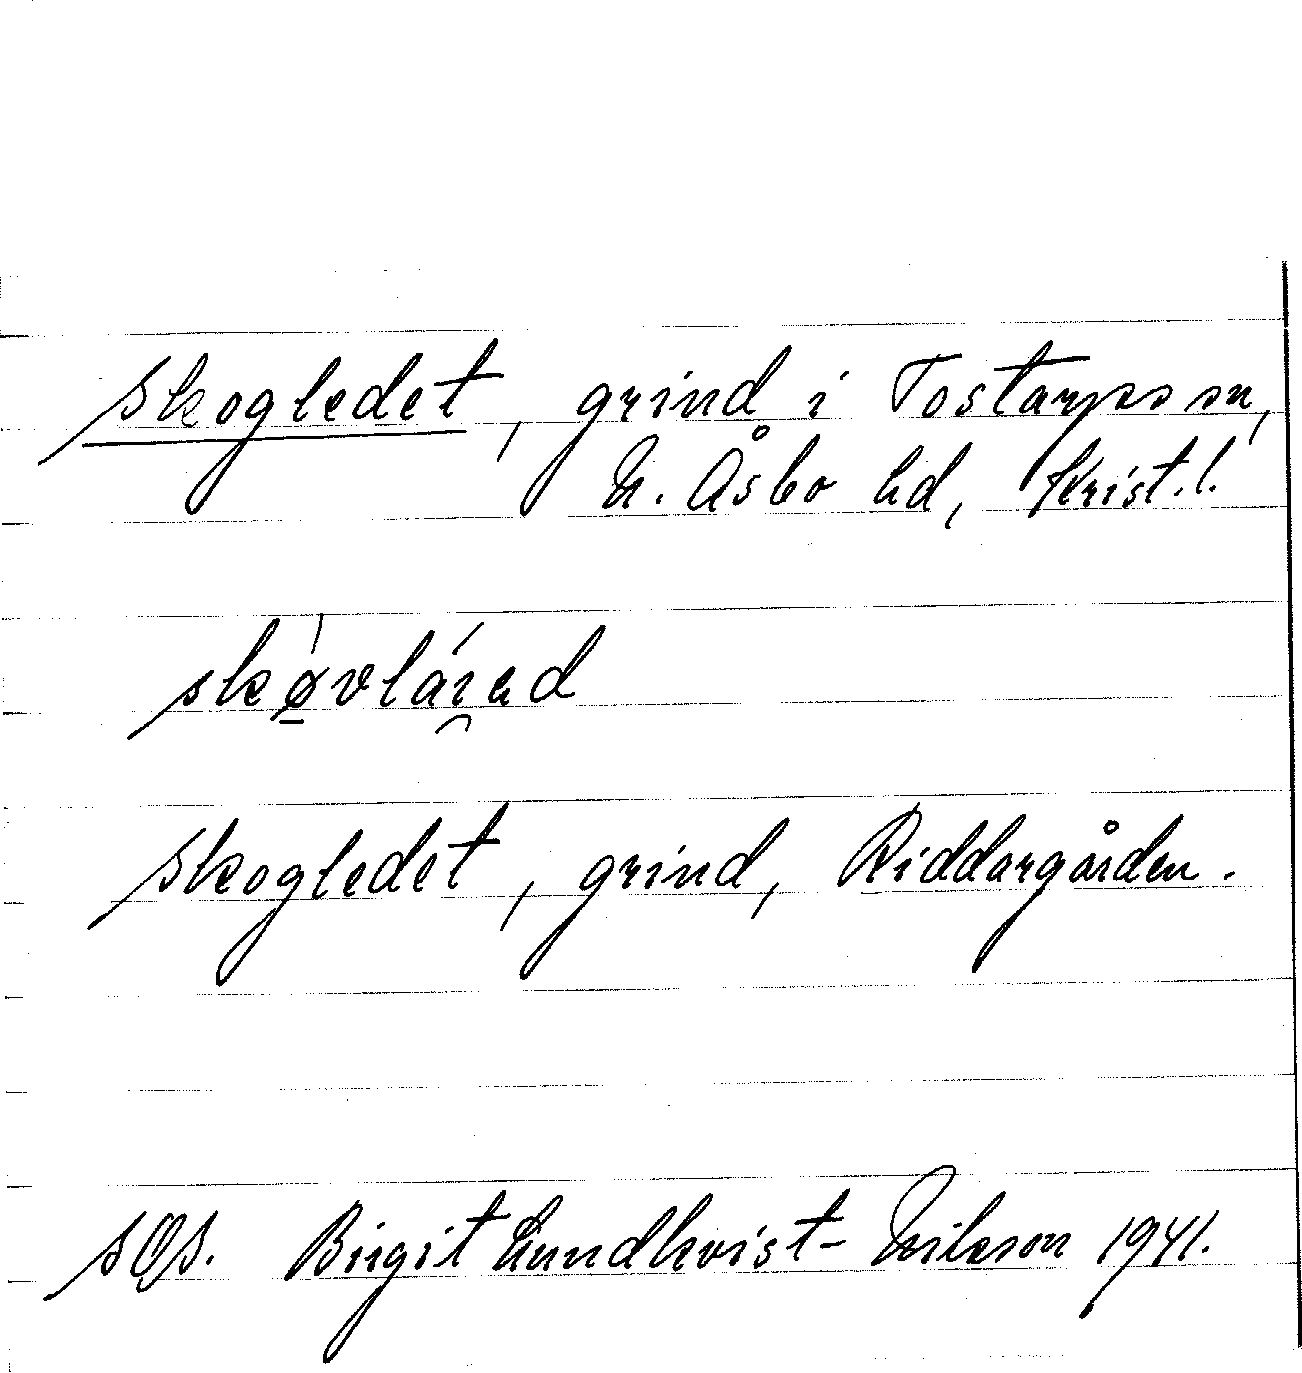 Skogledet, grind i Tostarps sn,
N. Åsbo hd, Krist. l.
Skogledet, grind, Riddargården.
Birgit Lundkvist-Nilsson 1941.